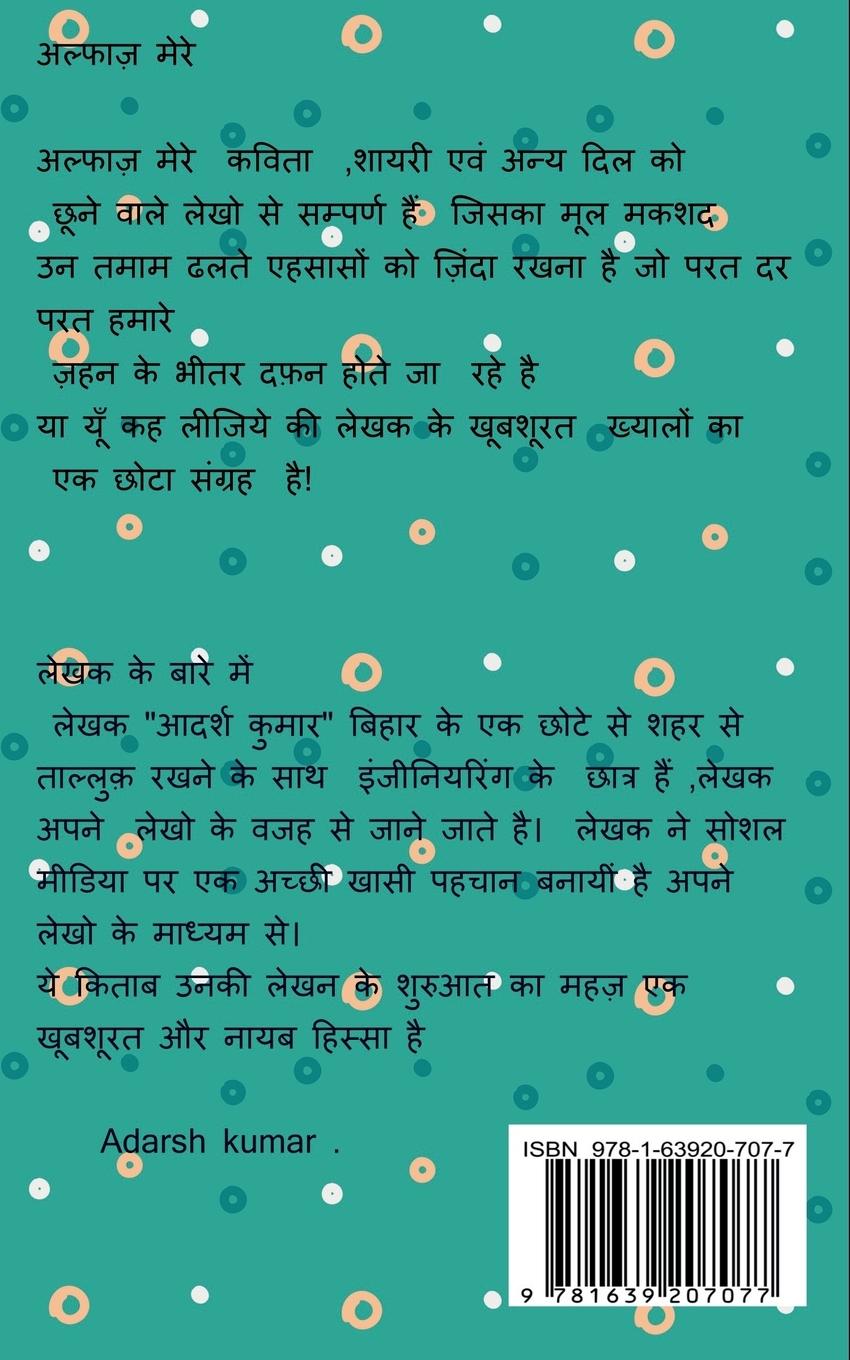 अल्फाज़ मेरे
अल्फाज़ मेरे कविता ,शायरी एवं अन्य दिल को
छूने वाले लेखो से सम्पर्ण हैं जिसका मूल मकशद
उन तमाम ढलते एहसासों को ज़िंदा रखना है जो परत दर
परत हमारे
ज़हन के भीतर दफ़न होते जा रहे है
या यूँ कह लीजिये की लेखक के खूबशूरत ख्यालों का
एक छोटा संग्रह है!
लेखक के बारे में
लेखक "आदर्श कुमार" बिहार के एक छोटे से शहर से
ताल्लुक़ रखने के साथ इंजीनियरिंग के छात्र हैं ,लेखक
अपने लेखो के वजह से जाने जाते है। लेखक ने सोशल
मीडिया पर एक अच्छी खासी पहचान बनायीं है अपने
लेखो के माध्यम से।
ये किताब उनकी लेखन के शुरुआत का महज़ एक
खूबशूरत और नायब हिस्सा है
Adarsh kumar .
ISBN 978-1-63920-707-7
9 781639 207077